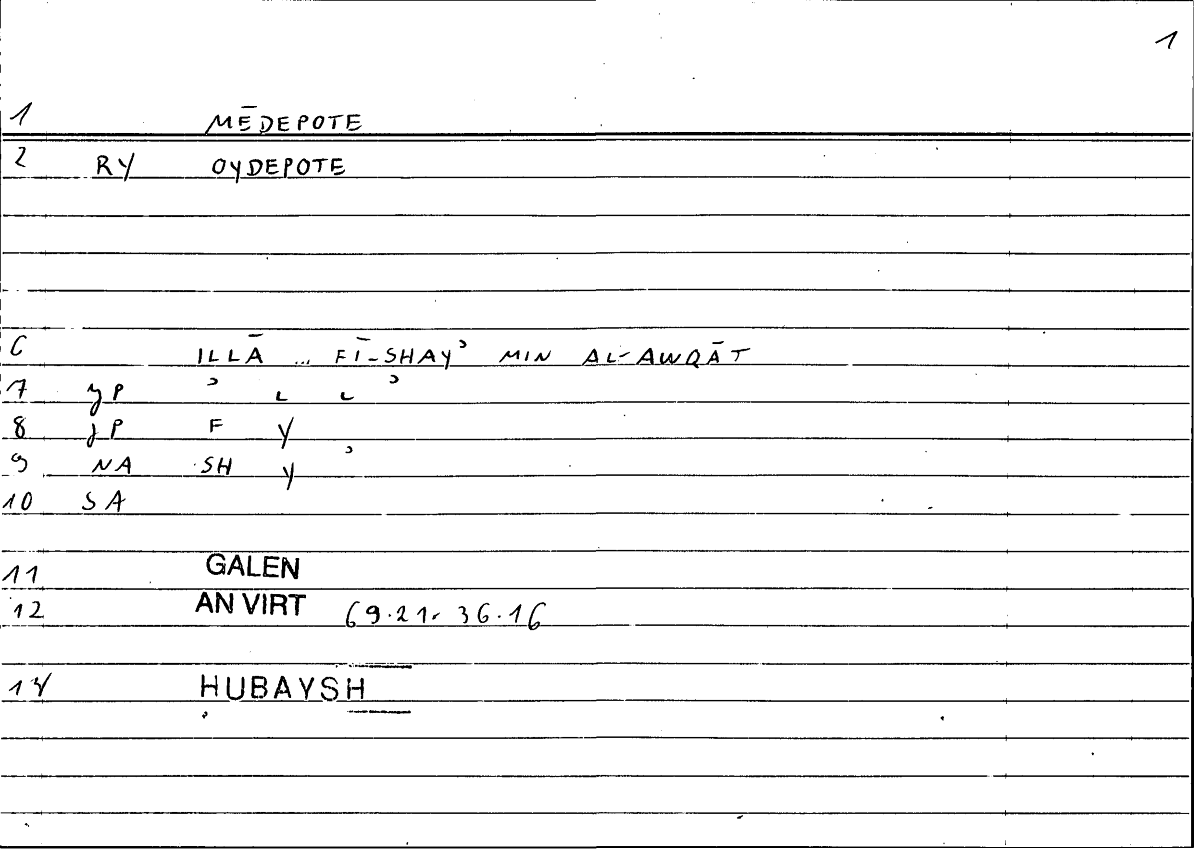 1
1 MĒDEPOTE
2 RY OYDEPOTE
6 ILLĀ ... FĪ-SHAYʾ MIN AL-AWQĀT
7 yP ʾ L L ʾ
8 JP F Y
9 NA SH Y ʾ
10 SA
11 GALEN
12 AN VIRT 69.21. 36.16
14 HUBAYSH